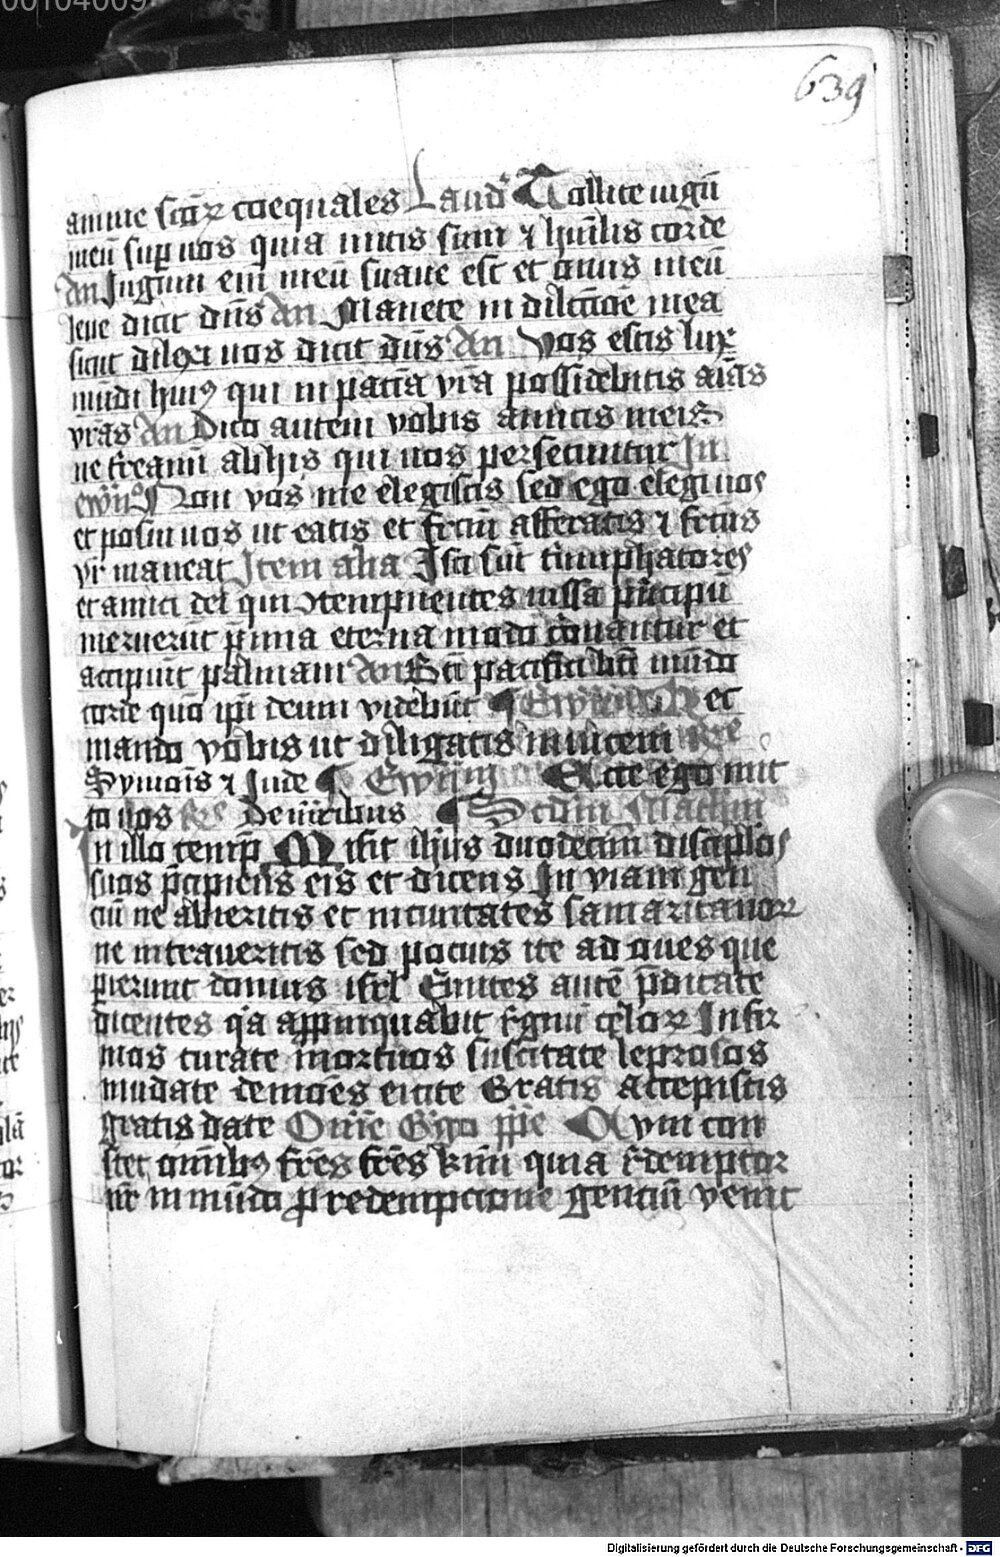 639
anime sctōꝝ coequales Laudꝰ Tollite iugū
meū suꝑ vos quia mitis sum ⁊ hūilis corde
An Iugum em̄ meū suaue est et onus meū
leue dicit dn̄s An Manete in dilcc̄ōe mea
sicut dilexi uos dicit dn̄s An Vos estis lux
mūdi huiꝰ qui in pacīa vr̄a possidebitis aīas
vr̄as An Dico autem vobis amicis meis
ne t̄reamī ab hiis qui uos persecuntur In
ewn̄ Non vos me elegistis sed ego elegi uos
et posui uos ut eatis et frc̄m afferatis ⁊ frc̄us
vr̄ maneat Item alia Isti sūt t̄umphatores
et amici dei qui ꝯtempnentes iussa pn̄cipū
meruerūt p̄mia eterna modo coronantur et
accipiūt palmam An Bt̄i pacifici bt̄i mūdo
corde quō ip̄i deum videbūt et
mando vobis ut diligatis inuicem
Symoīs ⁊ Jude Ecce ego mit
to uos De m̄ribus Scdm̄ Mathm̄
In illo tem̄p Misit ih̄us duodecim discip̄los
suos p̄cipiens eis et dicens In viam gen
ciū ne abieritis et in ciuitates samaritanoꝝ
ne intraueritis sed pocius ite ad oues que
ꝑierunt domus isrl̄ Eūntes autē p̄dicate
dicentes qꝛ a appīnquabit r̄gnū celoꝝ Infir
mos curate mortuos suscitate leprosos
mūdate demōes eicite Gratis accepistis
gratis date Om̄ie Gḡo pp̄e Quin con
stet omībꝰ fr̄es fr̄es k̄mi quia r̄demptor
nr̄ in mūdo ꝓ redempcione genciū venit
Digitalisierung gefördert durch die Deutsche Forschungsgemeinschaft - DFG